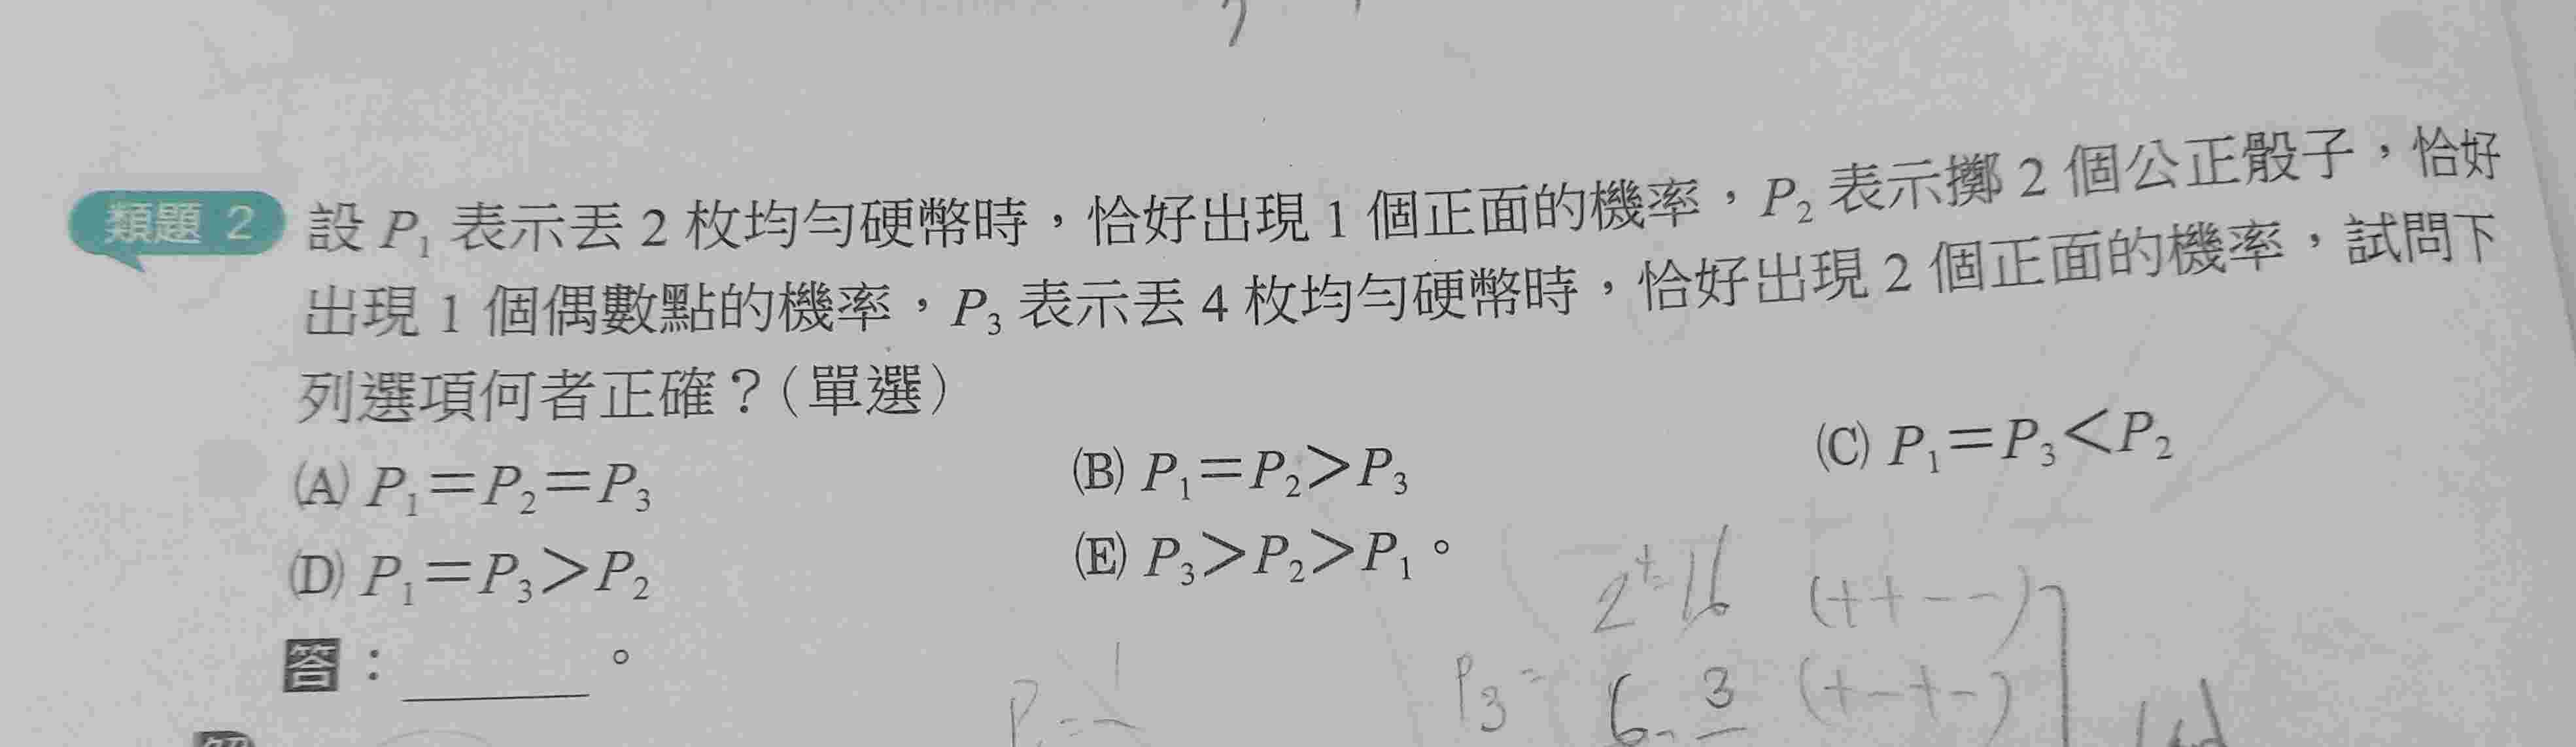 類題 2 設 P₁ 表示丟 2 枚均勻硬幣時，恰好出現 1 個正面的機率，P₂ 表示擲 2 個公正骰子，恰好
出現 1 個偶數點的機率，P₃ 表示丟 4 枚均勻硬幣時，恰好出現 2 個正面的機率，試問下
列選項何者正確？（單選）
(A) P₁＝P₂＝P₃ (B) P₁＝P₂＞P₃ (C) P₁＝P₃＜P₂
(D) P₁＝P₃＞P₂ (E) P₃＞P₂＞P₁。
答：＿＿＿。
2⁴=16 (++--)
P₃= 6 3 (+-+-)